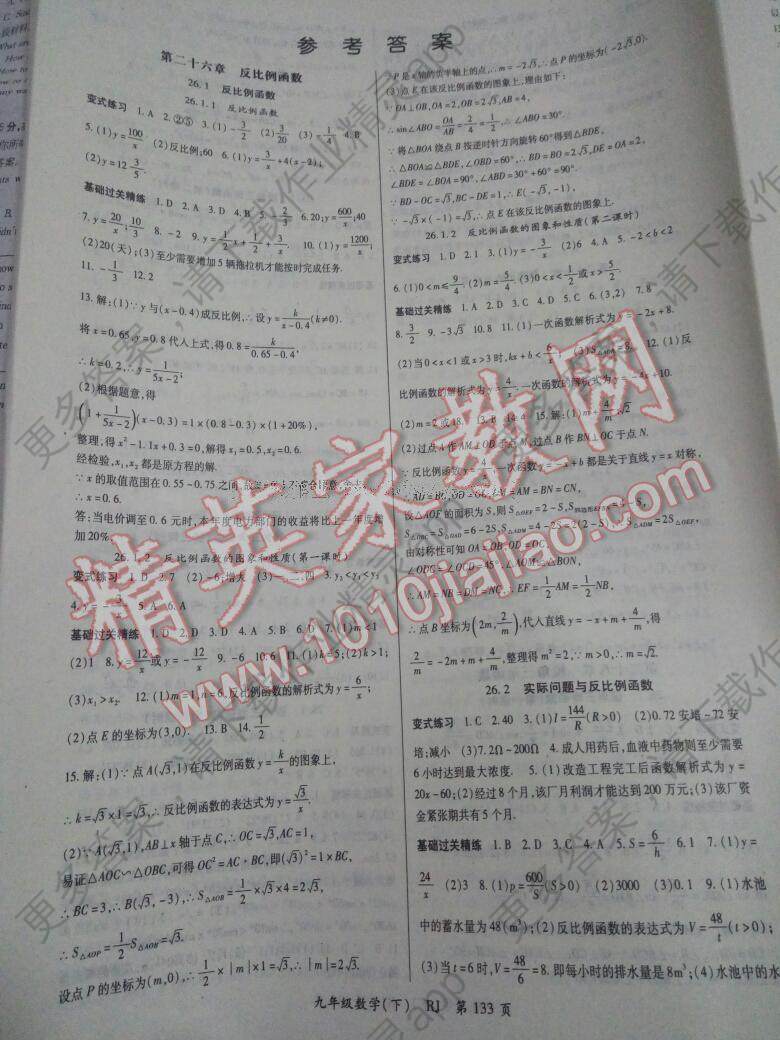 参考答案
第二十六章 反比例函数
26.1 反比例函数
26.1.1 反比例函数
变式练习 1. A 2. ②⑤ 3. (1) -3/2 (2) 3/20 (3) =1/4 4. B
5. (1) y=100/x (2)反比例;60 6. (1) y=3/x+4(x-2);
(2) y=12 3/5.
基础过关精练 1. D 2. A 3. D 4. B 5. -2/3 6. 20; y=600/x; 40
7. y=20/x; 10/3 8. -2 9. y=1/2x+1/2+3/x. 10. (1) y=1200/x;
(2)20(天);(3)至少需要增加5辆拖拉机才能按时完成任务.
11. -1/3 12. 2
13. 解:(1)∵y与(x-0.4)成反比例,∴设y=k/(x-0.4)(k≠0).
将x=0.65,y=0.8代入上式,得0.8=k/(0.65-0.4),
∴k=0.2,∴y=1/(5x-2);
(2)根据题意,得
(1+1/(5x-2))(x-0.3)=1×(0.8-0.3)×(1+20%),
整理,得x²-1.1x+0.3=0,解得x₁=0.5,x₂=0.6.
经检验,x₁,x₂都是原方程的解.
∵x的取值范围在0.55~0.75之间,
∴x=0.6.
答:当电价调至0.6元时,本年度电力部门的收益将比上一年度增
加20%.
26.1.2 反比例函数的图象和性质(第一课时)
变式练习 1. D 2. 7 (2)-6;增大 3. y₃<y₁<y₂
4. y=-3/x 5. A 6. A
基础过关精练 1. D 2. D 3. D 4. A 5. B 6. D 7. (1)m<1
(2)1 8. y=12/x或y=-12/x 9. -6 10. 6 11. (1)k=5;(2)k>1;
(3)x₁>x₂. 12. (1)m=1,n=6,反比例函数的解析式为y=6/x;
(2)点E的坐标为(3,0). 13. B 14. 1/2
15. 解:(1)∵点A(√3,1)在反比例函数y=k/x的图象上,
∴k=√3×1=√3,∴反比例函数的表达式为y=√3/x.
(2)∵A(√3,1),AB⊥x轴于点C,∴OC=√3,AC=1,
易证△AOC∽△OBC,可得OC²=AC·BC,即(√3)²=1×BC,
∴BC=3,∴B(√3,-3),∴S△AOB=1/2×√3×4=2√3,
∴S△AOP=1/2S△AOB=√3.
设点P的坐标为(m,0),∴1/2×|m|×1=√3,∴|m|=2√3.
P是x轴的负半轴上的点,∴m=-2√3,∴点P的坐标为(-2√3,0).
(3)点E在该反比例函数的图象上,理由如下:
∵OA⊥OB,OA=2,OB=2√3,AB=4,
∴sin∠ABO=OA/AB=2/4=1/2,∴∠ABO=30°.
∵将△BOA绕点B按逆时针方向旋转60°得到△BDE,
∴△BOA≌△BDE,∠OBD=60°,∴BD=BO=2√3,DE=OA=2,
∠BDE=∠BOA=90°,∠ABD=30°+60°=90°.
∵BD-OC=√3,BC-DE=1,∴E(-√3,-1),
∵-√3×(-1)=√3,∴点E在该反比例函数的图象上.
26.1.2 反比例函数的图象和性质(第二课时)
变式练习 1. D 2. 1 3. (1)y=-3/x (2)6 4. A 5. -2<b<2
6. (1)0<m≤9/4 (2)m=5/4 (3)0<x<1/2或x>5/2.
基础过关精练 1. A 2. C 3. C 4. D 5. C 6. (3,2) 7. 8
8. 3/2 9. -3√3 10. 8 11. (1)一次函数解析式为y=-2x+8.
(2)当0<x<1或x>3时,kx+b<6/x; (3)S△AOB=8. 12. (1)反
比例函数的解析式为y=4/x,一次函数的解析式为y=-4x+10.
(2)m=2或18. 13. B 14. 4 15. 解:(1)m+4/m;√2
(2)过点A作AM⊥OD于点M,过点B作BN⊥OC于点N.
∵反比例函数y=4/x,一次函数y=-x+b都是关于直线y=x对称,
∴AD=BC,OD=OC,DM=AM=BN=CN,
由对称性可知OA=OB,OD=OC,
∴∠ODC=∠OCD=45°,△AOM≌△BON,
∴AM=NB=DM=NC,∴EF=1/2AM=1/2NB,
∴点B坐标为(2m,2/m),代入直线y=-x+m+4/m,得
2/m=-2m+m+4/m,整理得m²=2,∵m>0,∴m=√2.
26.2 实际问题与反比例函数
变式练习 1. C 2. 40 3. (1)I=144/R(R>0) (2)0.72安培~72安
培;减小 (3)7.2Ω~200Ω 4. 成人用药后,血液中药物则至少需要
6小时达到最大浓度. 5. (1)改造工程完工后函数解析式为y=
20x-60;(2)经过8个月,该厂月利润才能达到200万元;(3)该厂资
金紧张期共有5个月.
基础过关精练 1. B 2. D 3. C 4. A 5. S=6/h 6. 1 7. (1)y=
24/x (2)3 8. (1)p=600/S(S>0) (2)3000 (3)0.1 9. (1)水池
中的蓄水量为48(m³);(2)反比例函数的表达式为V=48/t(t>0);
(3)当t=6时,V=48/6=8.即每小时的排水量是8m³;(4)水池中的水
九年级数学(下) RJ 第133页
精英家教网
www.1010jiajiao.com
更多答案,请下载作业精灵app